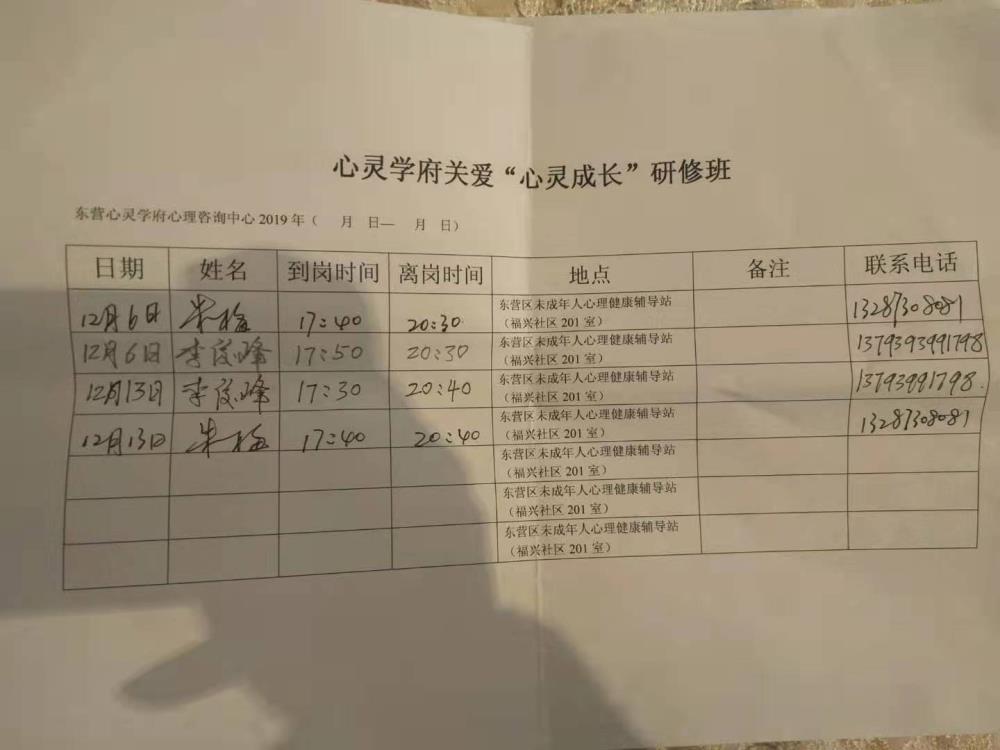 心灵学府关爱“心灵成长”研修班
东营心灵学府心理咨询中心 2019 年（ 月 日— 月 日）
日期 姓名 到岗时间 离岗时间 地点 备注 联系电话
12月6日 朱梅 17:40 20:30 东营区未成年人心理健康辅导站 13287308081
（福兴社区 201 室）
12月6日 李俊峰 17:50 20:30 东营区未成年人心理健康辅导站 137939391798
（福兴社区 201 室）
12月13日 李俊峰 17:30 20:40 东营区未成年人心理健康辅导站 13793991798.
（福兴社区 201 室）
12月13日 朱梅 17:40 20:40 东营区未成年人心理健康辅导站 13287308081
（福兴社区 201 室）
东营区未成年人心理健康辅导站
（福兴社区 201 室）
东营区未成年人心理健康辅导站
（福兴社区 201 室）
东营区未成年人心理健康辅导站
（福兴社区 201 室）